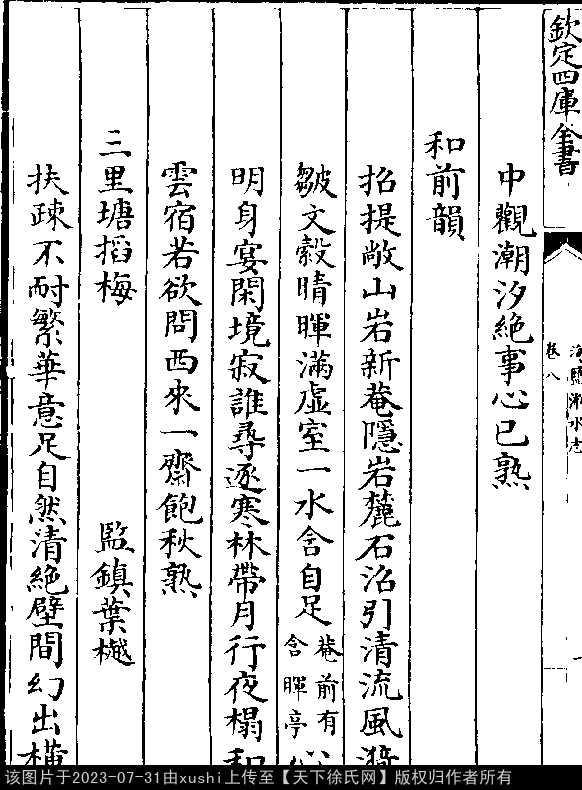 欽定四庫全書
海鹽澉水志
卷八
中觀潮汐絶事心已熟
和前韻
招提敞山岩新菴隱岩麓石沼引清流風漪
皺文縠晴暉滿虛室一水含自足菴前有含暉亭心
明身宴閑境寂誰尋逐寒林帶月行夜榻和
雲宿若欲問西來一齋飽秋熟
三里塘搯梅 監鎮葉樾
扶疎不耐繁華意足自然清絶壁間幻出橫
该图片于2023-07-31由xushi上传至【天下徐氏网】版权归作者所有